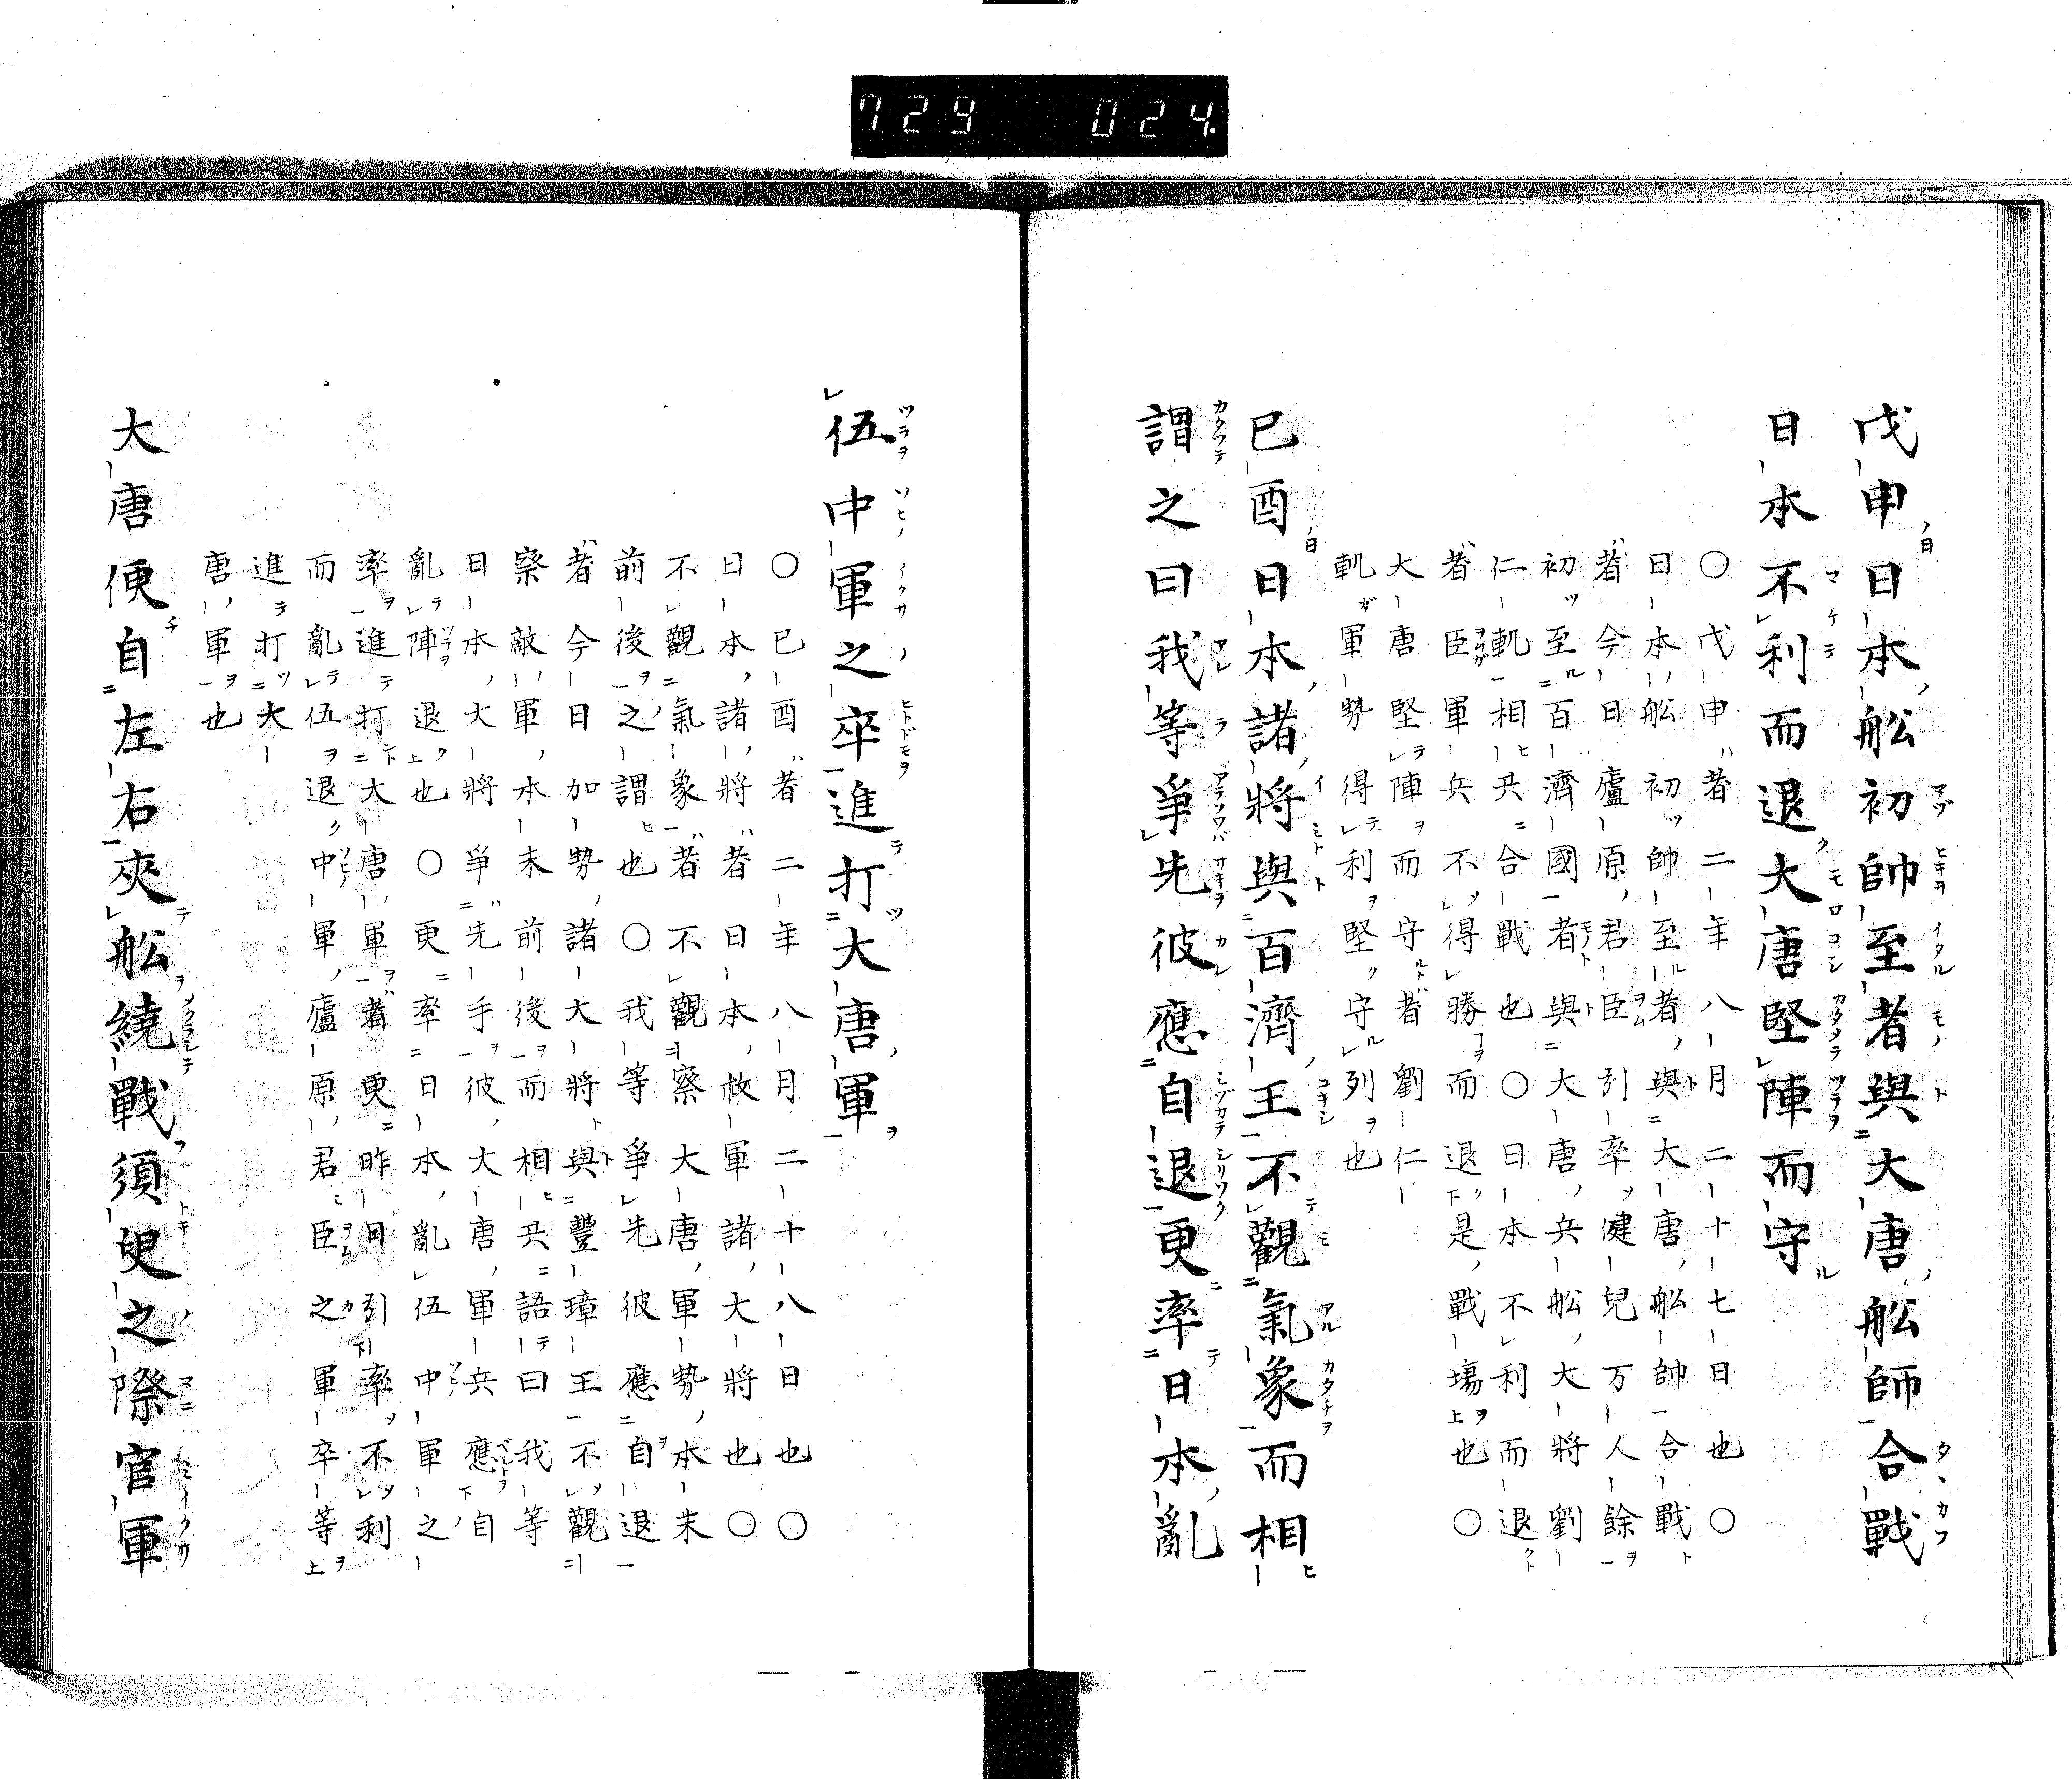 729 024
戊申日本舩初帥至者與大唐舩師合戰
日本不利而退大唐堅陣而守
〇戊申者二年八月二十七日也〇
日本舩初帥至者與大唐舩帥合戰
者今日廬原君臣引率健兒万人餘
初至百濟國者與大唐兵舩大將劉
仁軌相共合戰也〇日本不利而退
者臣軍兵不得勝而退是戰塲也〇
大唐堅陣而守者劉仁
軌軍勢得利堅守列也
巳酉日本諸將與百濟王不觀氣象而相
謂之曰我等爭先彼應自退更率日本亂
伍中軍之卒進打大唐軍
〇巳酉者二年八月二十八日也〇
日本諸將者日本救軍諸大將也〇
不觀氣象者不觀察大唐軍勢本末
前後之謂也〇我等爭先彼應自退
者今日加勢諸大將與豐璋王不觀
察敵軍本末前後而相共語曰我等
日本大將爭先手彼大唐軍兵應自
亂陣退也〇更率日本亂伍中軍之
率進打大唐軍者更昨日引率不利
而亂伍退中軍廬原君臣之軍卒等
進打大
唐軍也
大唐便自左右夾舩繞戰須臾之際官軍